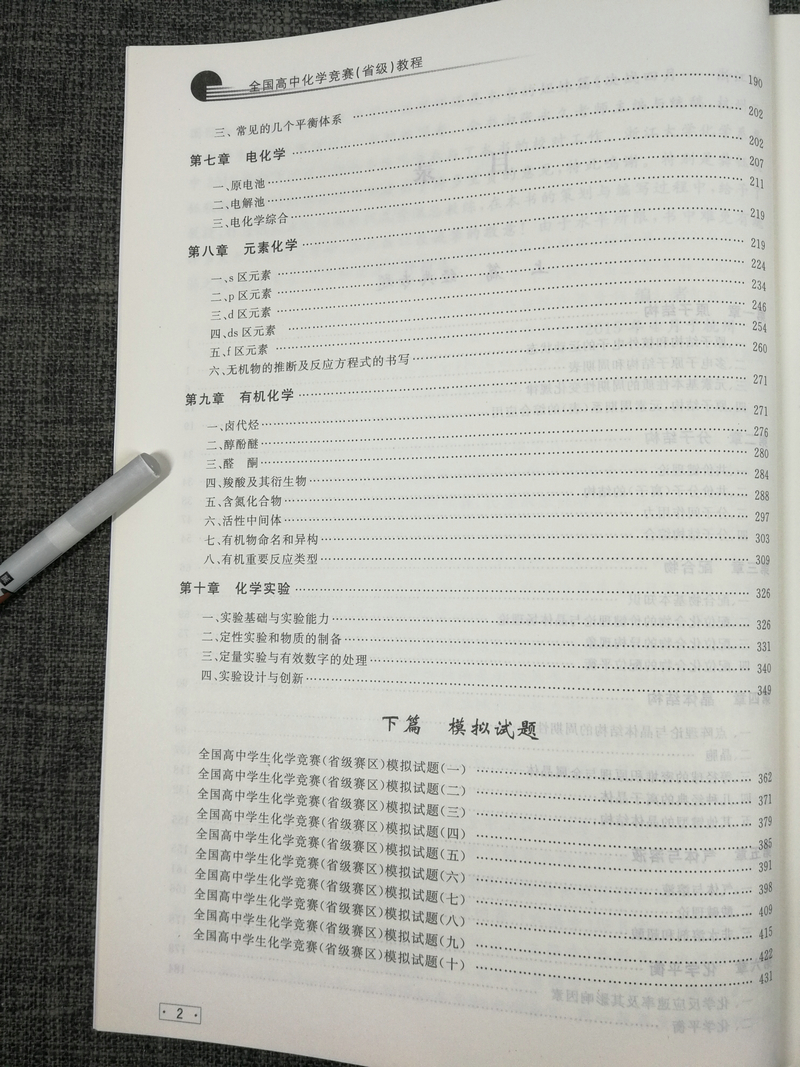 全国高中化学竞赛(省级)教程
三、常见的几个平衡体系 …… 190
第七章 电化学 …… 202
一、原电池 …… 202
二、电解池 …… 207
三、电化学综合 …… 211
第八章 元素化学 …… 219
一、s 区元素 …… 219
二、p 区元素 …… 224
三、d 区元素 …… 234
四、ds 区元素 …… 246
五、f 区元素 …… 254
六、无机物的推断及反应方程式的书写 …… 260
第九章 有机化学 …… 271
一、卤代烃 …… 271
二、醇酚醚 …… 276
三、醛 酮 …… 280
四、羧酸及其衍生物 …… 284
五、含氮化合物 …… 288
六、活性中间体 …… 297
七、有机物命名和异构 …… 303
八、有机重要反应类型 …… 309
第十章 化学实验 …… 326
一、实验基础与实验能力 …… 326
二、定性实验和物质的制备 …… 331
三、定量实验与有效数字的处理 …… 340
四、实验设计与创新 …… 349
下篇 模拟试题
全国高中学生化学竞赛(省级赛区)模拟试题(一) …… 362
全国高中学生化学竞赛(省级赛区)模拟试题(二) …… 371
全国高中学生化学竞赛(省级赛区)模拟试题(三) …… 379
全国高中学生化学竞赛(省级赛区)模拟试题(四) …… 385
全国高中学生化学竞赛(省级赛区)模拟试题(五) …… 391
全国高中学生化学竞赛(省级赛区)模拟试题(六) …… 398
全国高中学生化学竞赛(省级赛区)模拟试题(七) …… 409
全国高中学生化学竞赛(省级赛区)模拟试题(八) …… 415
全国高中学生化学竞赛(省级赛区)模拟试题(九) …… 422
全国高中学生化学竞赛(省级赛区)模拟试题(十) …… 431
· 2 ·